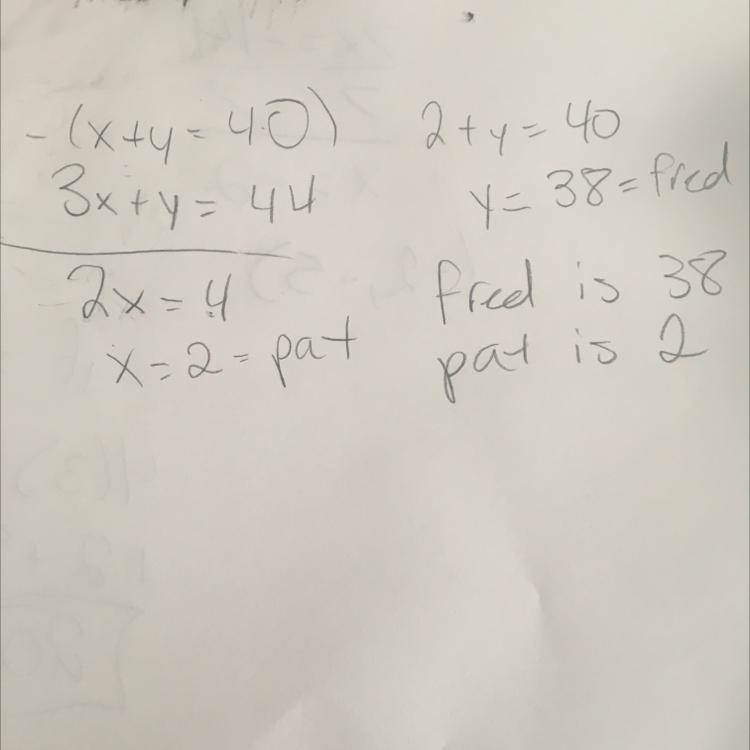 -(x+y = 40)
3x+y = 44
2x = 4
x = 2 = pat
2+y = 40
y = 38 = fred
fred is 38
pat is 2